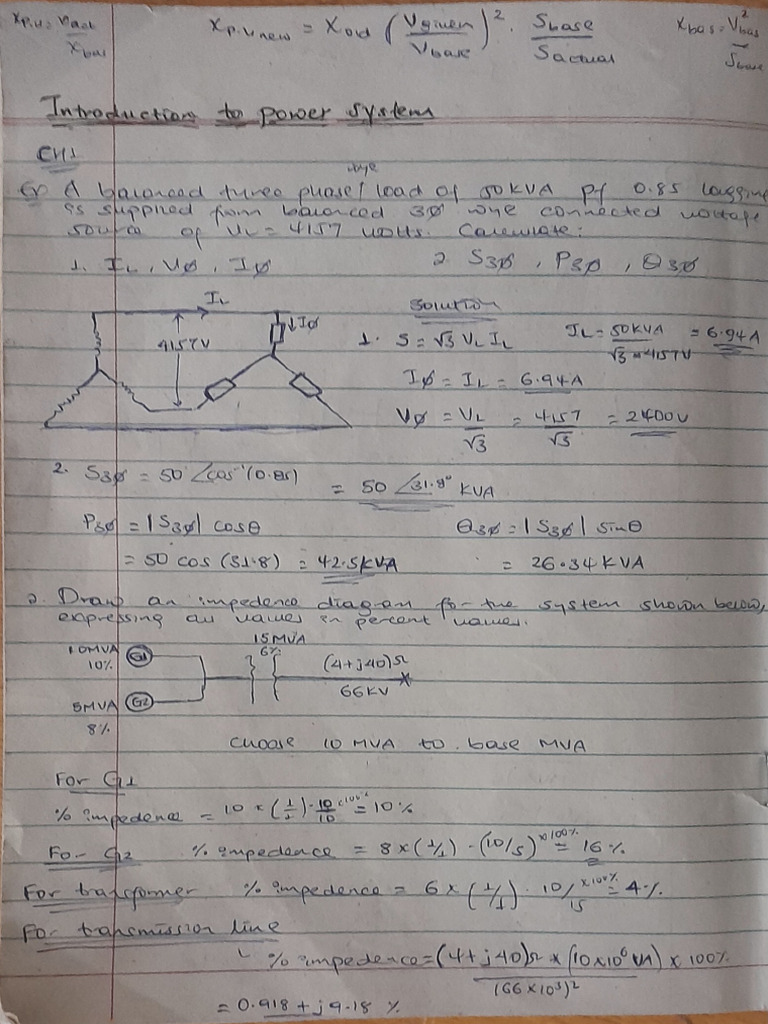 Xp.u = Xact / Xbas
Xp.u new = Xold (Vgiven / Vbase)² · Sbase / Sactual
Xbas = V²bas / Sbase
Introduction to power system
CH1
wye
A balanced three phase / load of 50 KVA Pf 0.85 lagging
is supplied from balanced 3Ø wye connected voltage
source of VL = 4157 volts. Calculate:
1. IL, VØ, IØ
2. S3Ø, P3Ø, Q3Ø
IL
4157V
IØ
Solution
1. S = √3 VL IL
IL = 50KVA / √3 × 4157V = 6.94A
IØ = IL = 6.94A
VØ = VL / √3 = 4157 / √3 = 2400V
2. S3Ø = 50 ∠cos⁻¹(0.85) = 50 ∠31.8° KVA
P3Ø = |S3Ø| cosθ
= 50 cos (31.8) = 42.5KVA
Q3Ø = |S3Ø| sinθ
= 26.34 KVA
2. Draw an impedence diagram for the system shown below,
expressing all values in percent values.
10MVA
10%
G1
15MVA
6%
(4+j40)Ω
66KV
5MVA
8%
G2
choose 10 MVA to base MVA
For G1
% impedence = 10 × (1/1) · 10/10 ×100% = 10%
For G2 % impedence = 8 × (1/1) · (10/5) ×100% = 16%
For transformer % impedence = 6 × (1/1) · 10/15 ×100% = 4%
For transmission line
% impedence = (4+j40)Ω × (10×10⁶ VA) × 100% / (66×10³)²
= 0.918 + j9.18 %